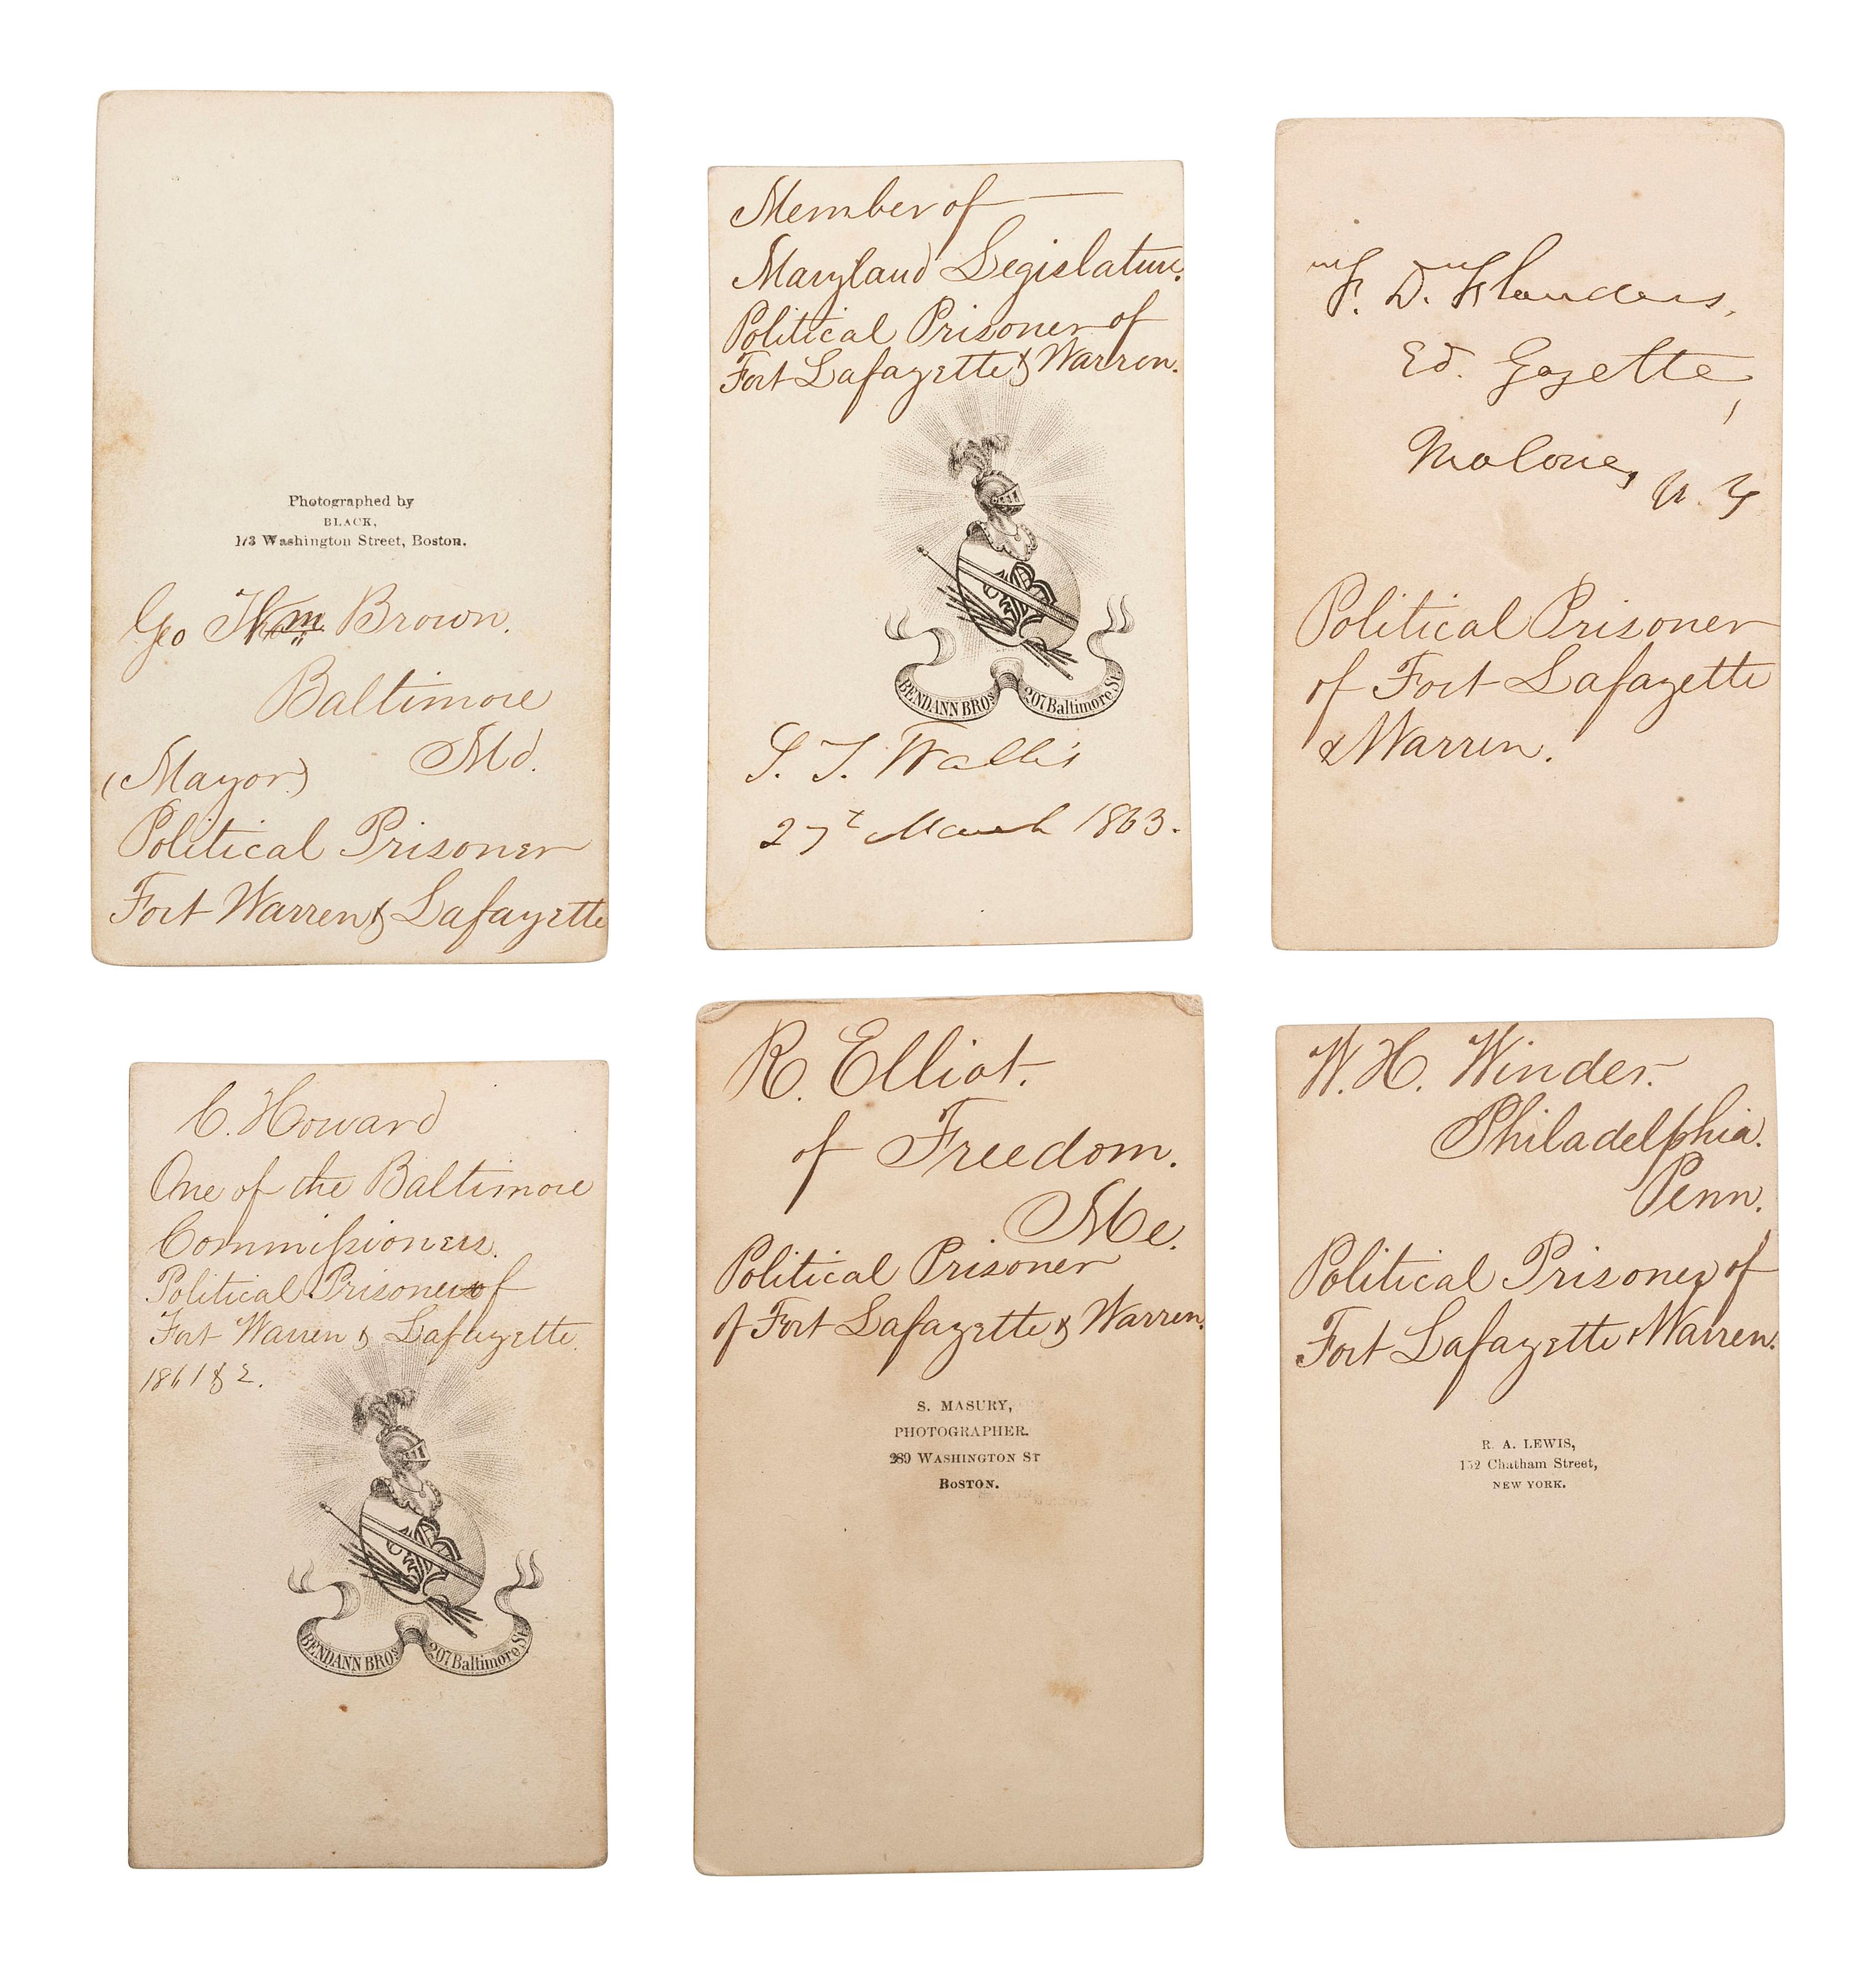 Photographed by
BLACK,
173 Washington Street, Boston.
Geo Wm Brown.
Baltimore
Md.
(Mayor)
Political Prisoner
Fort Warren & Lafayette
Member of
Maryland Legislature.
Political Prisoner of
Fort Lafayette & Warren.
BENDANN BROS 207 Baltimore St.
S. T. Wallis
27t March 1863.
F. D. Flanders,
Ed. Gazette,
Malone, N. Y
Political Prisoner
of Fort Lafayette
& Warren.
C. Howard
One of the Baltimore
Commissioners.
Political Prisoner of
Fort Warren & Lafayette.
1861 & 2.
BENDANN BROS 207 Baltimore St.
R. Elliot.
of Freedom.
Me.
Political Prisoner
of Fort Lafayette & Warren.
S. MASURY,
PHOTOGRAPHER.
289 WASHINGTON ST
BOSTON.
W. H. Winder.
Philadelphia.
Penn.
Political Prisoner of
Fort Lafayette & Warren.
R. A. LEWIS,
152 Chatham Street,
NEW YORK.